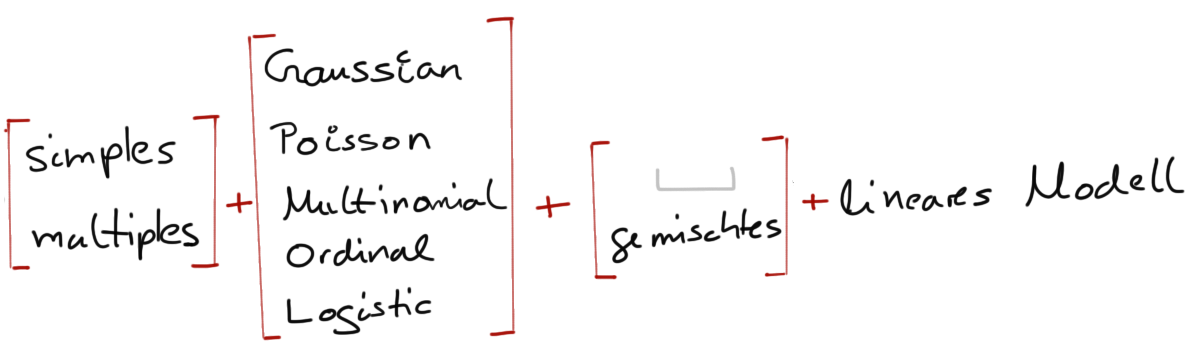 simples
multiples
+
Gaussian
Poisson
Multinomial
Ordinal
Logistic
+
gemischtes
+ lineares Modell